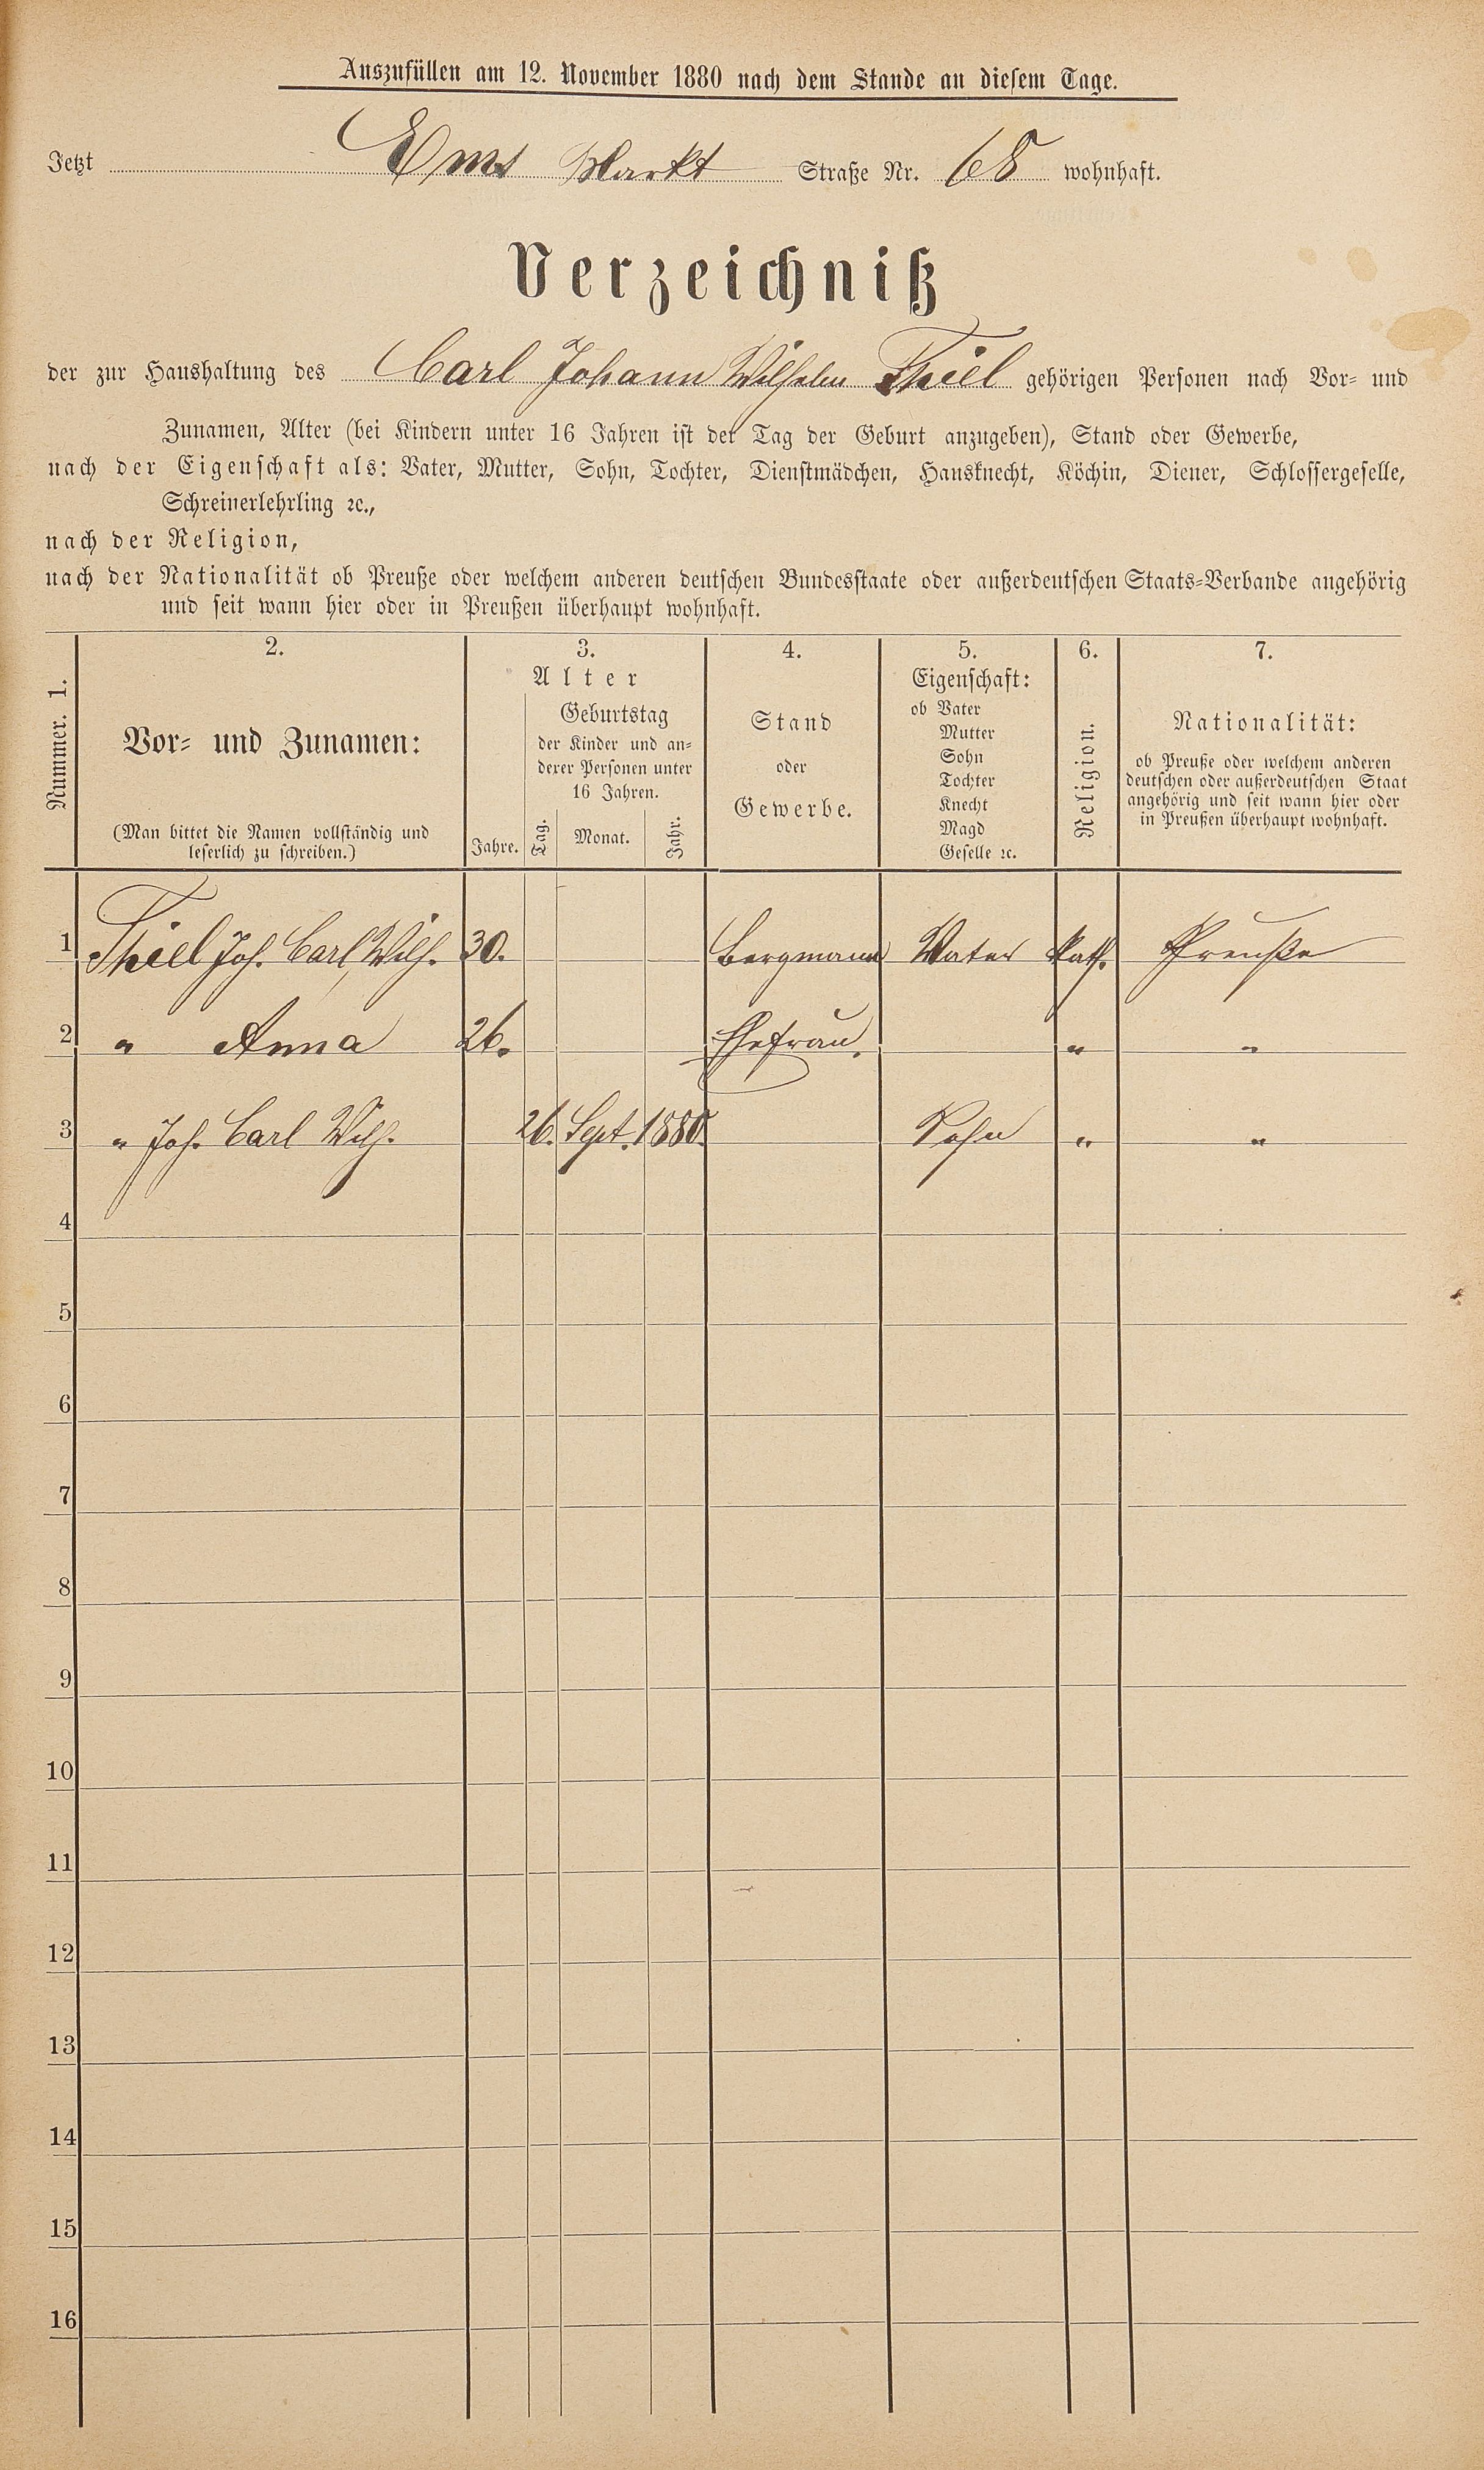 Auszufüllen am 12. November 1880 nach dem Stande an diesem Tage.
Jetzt Ems Markt Straße Nr. 68 wohnhaft.
Verzeichniß
der zur Haushaltung des Carl Johann Wilhelm Thiel gehörigen Personen nach Vor- und
Zunamen, Alter (bei Kindern unter 16 Jahren ist der Tag der Geburt anzugeben), Stand oder Gewerbe,
nach der Eigenschaft als: Vater, Mutter, Sohn, Tochter, Dienstmädchen, Hausknecht, Köchin, Diener, Schlossergeselle,
Schreinerlehrling ꝛc.,
nach der Religion,
nach der Nationalität ob Preuße oder welchem anderen deutschen Bundesstaate oder außerdeutschen Staats-Verbande angehörig
und seit wann hier oder in Preußen überhaupt wohnhaft.
Nummer. 1.
2.
Vor- und Zunamen:
(Man bittet die Namen vollständig und
leserlich zu schreiben.)
3.
Alter
Jahre.
Geburtstag
der Kinder und an-
derer Personen unter
16 Jahren.
Tag.
Monat.
Jahr.
4.
Stand
oder
Gewerbe.
5.
Eigenschaft:
ob Vater
Mutter
Sohn
Tochter
Knecht
Magd
Geselle ꝛc.
6.
Religion.
7.
Nationalität:
ob Preuße oder welchem anderen
deutschen oder außerdeutschen Staat
angehörig und seit wann hier oder
in Preußen überhaupt wohnhaft.
1 Thiel Joh. Carl Wilh. 30. Bergmann Vater Kath. Preuße
2 " Anna 26. Ehefrau. " "
3 " Joh. Carl Wilh. 26. Sept. 1880. Sohn " "
4
5
6
7
8
9
10
11
12
13
14
15
16